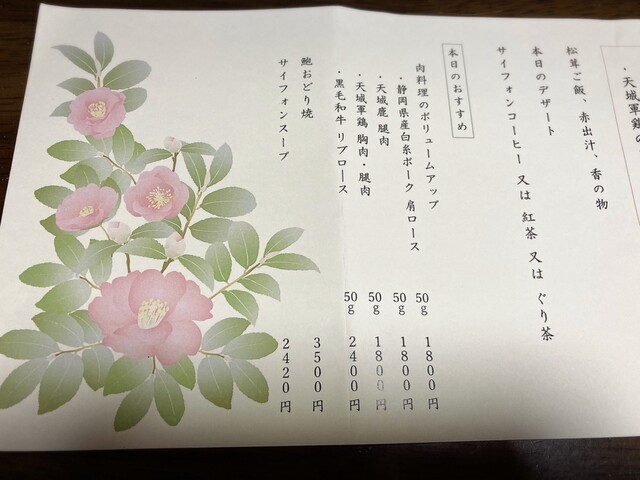 ・天城軍鶏の
松茸ご飯、赤出汁、香の物
本日のデザート
サイフォンコーヒー 又は 紅茶 又は ぐり茶
本日のおすすめ
肉料理のボリュームアップ
・静岡県産白糸ポーク 肩ロース 50g 1800円
・天城鹿 腿肉 50g 1800円
・天城軍鶏 胸肉・腿肉 50g 1800円
・黒毛和牛 リブロース 50g 2400円
鮑おどり焼 3500円
サイフォンスープ 2420円